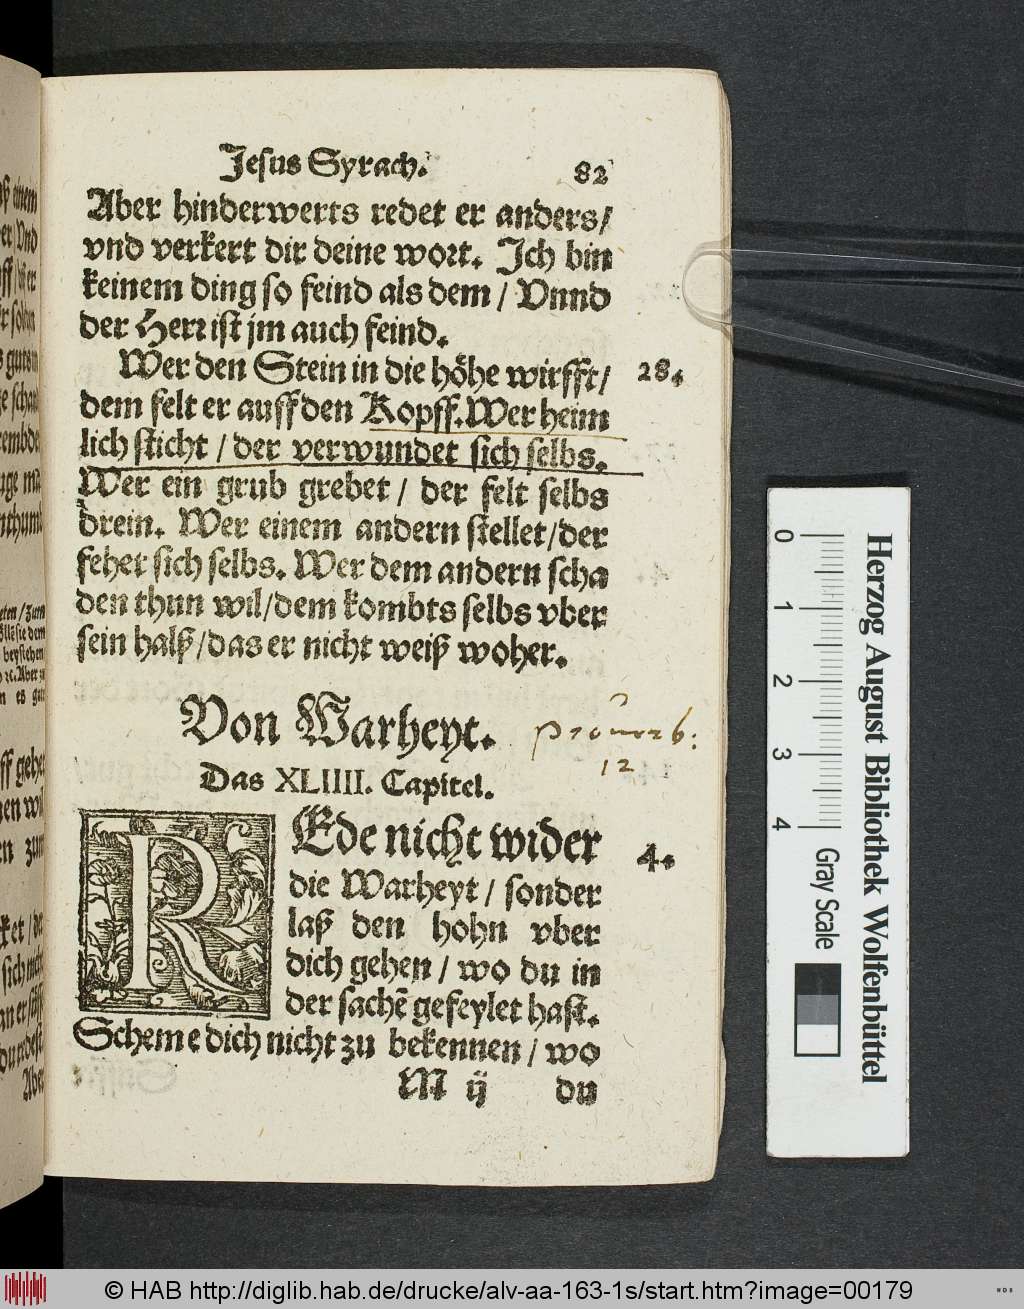 Jesus Syrach. 82
Aber hinderwerts redet er anders/
vnd verkert dir deine wort. Ich bin
keinem ding so feind als dem / Vnnd
der Herr ist jm auch feind.
Wer den Stein in die höhe wirfft/ 28.
dem felt er auff den Kopff. Wer heim
lich sticht / der verwundet sich selbs.
Wer ein grub grebet / der felt selbs
drein. Wer einem andern stellet/der
fehet sich selbs. Wer dem andern scha
den thun wil/dem kombts selbs vber
sein halß/das er nicht weiß woher.
Von Warheyt. Prouerb:
12
Das XLIIII. Capitel.
REde nicht wider 4.
die Warheyt / sonder
laß den hohn vber
dich gehen / wo du in
der sachẽ gefeylet hast.
Scheme dich nicht zu bekennen / wo
M ij du
0 1 2 3 4
Herzog August Bibliothek Wolfenbüttel
Gray Scale
© HAB http://diglib.hab.de/drucke/alv-aa-163-1s/start.htm?image=00179